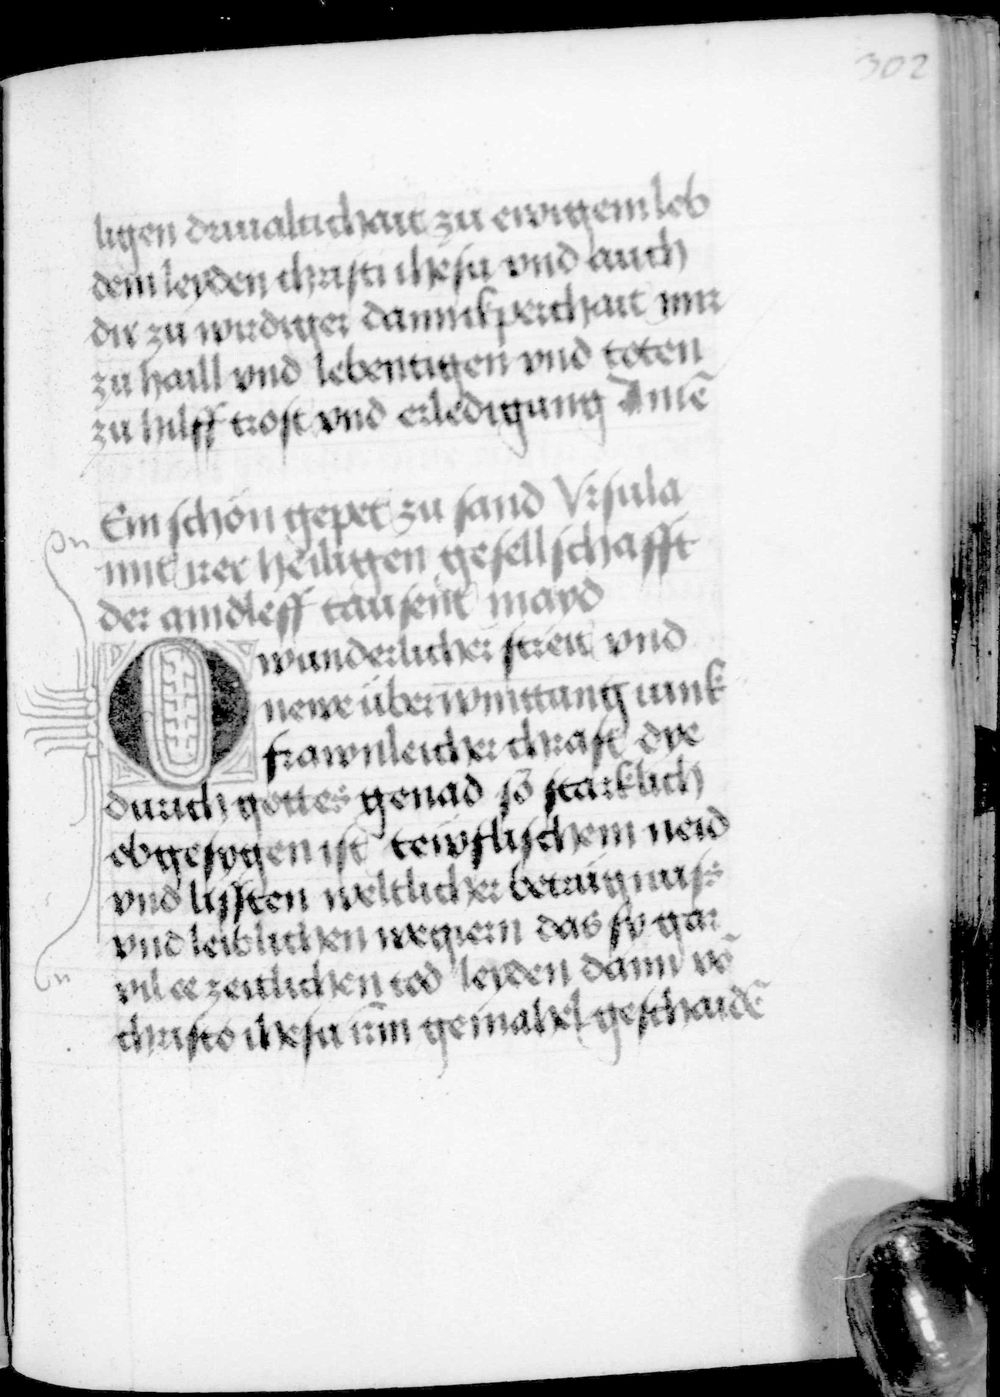 302
ligen driualtichait zu ewigem leb
dem leyden christi ihesu vnd auch
dir zu wirdiger dannikperchait mir
zu haill vnd lebentigen vnd toten
zu hilff trost vnd erledigung Amē
Ein schön gepet zu sand Vrsula
mit irer heiligen gesellschafft
der aindleff tausent mayd
O wunderlicher streit vnd
newe überwinttung iunk
frawnleicher chraft dye
durich gottes genad so starklich
obgesygen ist tewflischem neid
vnd lissten weltlicher betrügnuss
vnd leiblichen wegiern das sy gar
vil ee zeitlichen tod leyden dann vō
christo ihesu irm gemahel geschaidē